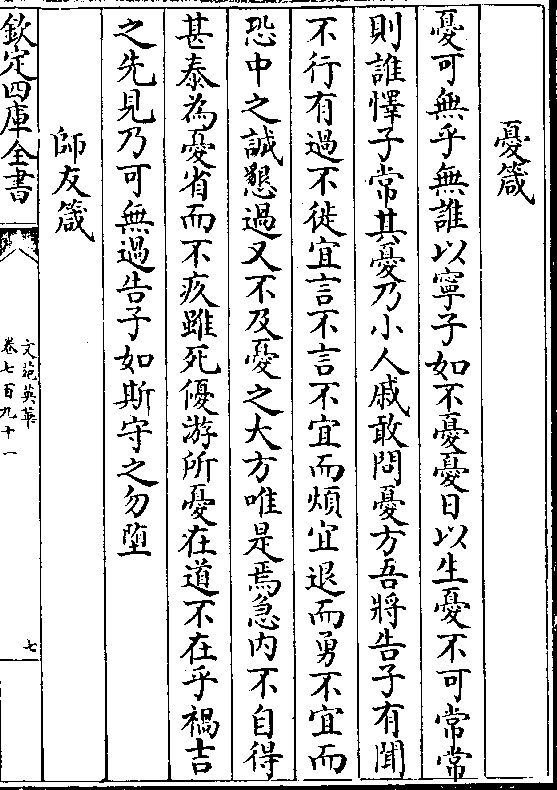 憂箴
憂可無乎無誰以寧子如不憂憂日以生憂不可常常
則誰懌子常其憂乃小人戚敢問憂方吾將告子有聞
不行有過不徙宜言不言不宜而煩宜退而勇不宜而
恐中之誠懇過又不及憂之大方唯是焉急内不自得
甚泰為憂省而不疚雖死優游所憂在道不在乎禍吉
之先見乃可無過告子如斯守之勿墮
師友箴
欽定四庫全書
文苑英華
卷七百九十一
七